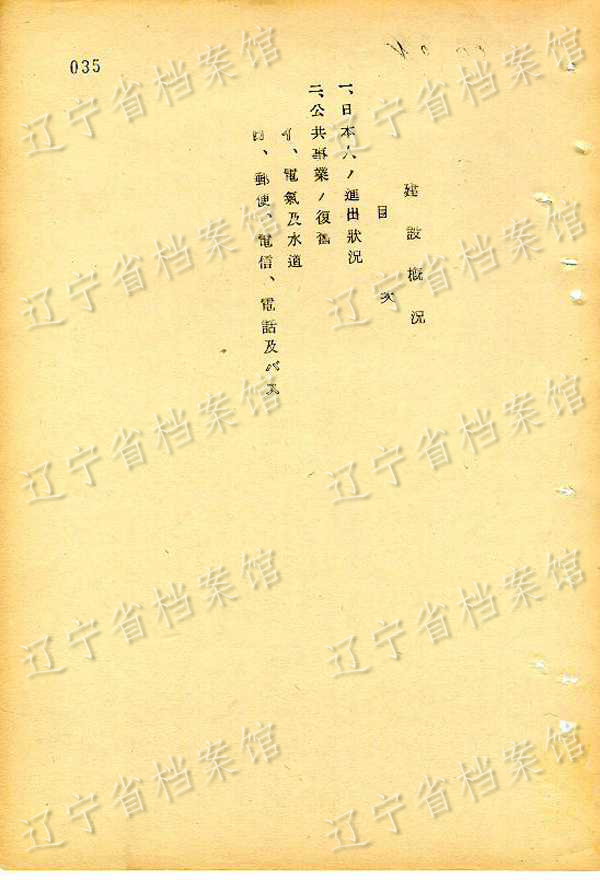 035
建設概況
目次
一、日本人ノ進出狀況
二、公共事業ノ復舊
イ、電氣及水道
ロ、郵便、電信、電話及バス
辽宁省档案馆
辽宁省档案馆
辽宁省档案馆
辽宁省档案馆
辽宁省档案馆
辽宁省档案馆
辽宁省档案馆
辽宁省档案馆
辽宁省档案馆
辽宁省档案馆